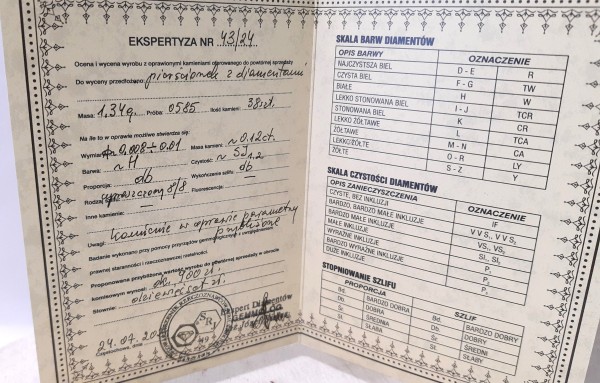 EKSPERTYZA NR 43/24
Ocena i wycena wyrobu z oprawionymi kamieniami do powtórnej sprzedaży
Do wyceny przedłożono: pierścionek z diamentami
Masa: 1,34g. Próba: 0,585 Ilość kamieni: 38szt.
Na ile to w oprawie możliwe stwierdza się:
Wymiary: 0.008 ÷ 0.01 Masa kamieni: ~ 0.12ct.
Barwa: ~ H Czystość: ~ SI 1.2
Proporcja: db Wykończenie szlifu: db
Rodzaj uproszczony 8/8 Fluorescencja: —
Inne kamienie: —
Uwagi: kamienie w oprawie parametry
przybliżone
Badanie wykonano przy pomocy przyrządów gemmologicznych z uwzględnieniem
prawnej staranności i rzeczoznawczej rzetelności
Proponowana przybliżona wartość wyrobu do powtórnej sprzedaży w stanie
Słownie: dziewięćset zł.
24.07.20
Ekspert Diamentów
SRJ
SKALA BARW DIAMENTÓW
OPIS BARWY OZNACZENIE
NAJCZYSTSZA BIEL D - E R
CZYSTA BIEL F - G TW
BIAŁE H W
LEKKO STONOWANA BIEL I - J TCR
STONOWANA BIEL K CR
LEKKO ŻÓŁTAWE L TCA
ŻÓŁTAWE M - N CA
LEKKO/ŻÓŁTE O - R LY
ŻÓŁTE S - Z Y
SKALA CZYSTOŚCI DIAMENTÓW
OPIS ZANIECZYSZCZENIA OZNACZENIE
CZYSTE, BEZ INKLUZJI IF
BARDZO, BARDZO MAŁE INKLUZJE V V S₁, V V S₂
BARDZO MAŁE INKLUZJE VS₁, VS₂
MAŁE INKLUZJE SI₁, SI₂
WYRAŹNE INKLUZJE P₁
BARDZO WYRAŹNE INKLUZJE P₂
DUŻE INKLUZJE P₃
STOPNIOWANIE SZLIFU
PROPORCJA SZLIF
Bd. BARDZO DOBRA Bd. BARDZO DOBRY
Db. DOBRA Db. DOBRY
Śr. ŚREDNIA Śr. ŚREDNI
SŁABA SŁABY